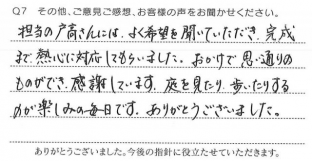 Q7 その他、ご意見ご感想、お客様の声をお聞かせください。
担当の戸高さんには、よく希望を聞いていただき、完成
まで熱心に対応してもらいました。おかげで思い通りの
ものができ、感謝しています。庭を見たり、歩いたりする
のが楽しみの毎日です。ありがとうございました。
ありがとうございました。今後の指針に役立たせていただきます。